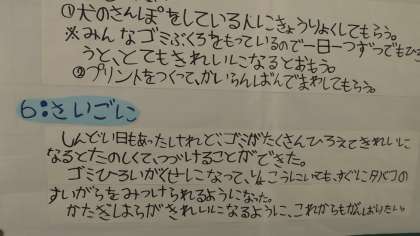 ①犬のさんぽをしている人にきょうりょくしてもらう。
※みんなゴミぶくろをもっているので一日一つずつでもひ
うと、とてもきれいになるとおもう。
②プリントをつくって、かいらんばんでまわしてもらう。
6:さいごに
しんどい日もあったけれど、ゴミがたくさんひろえてきれいに
なるとたのしくて、つづけることができた。
ゴミひろいがくせになって、りょこうにいても、すぐにタバコの
すいがらをみつけられるようになった。
かたぎはらがきれいになるように、これからもがんばりたい。